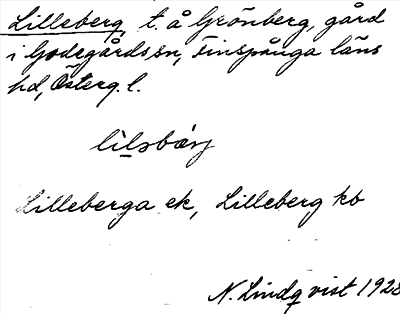 Lilleberg, t. å Grönberg, gård
i Godegårds sn, Finspånga läns
hd, Österg. l.
lìlsbærj
Lilleberga ek, Lilleberg kb
N. Lindqvist 1928